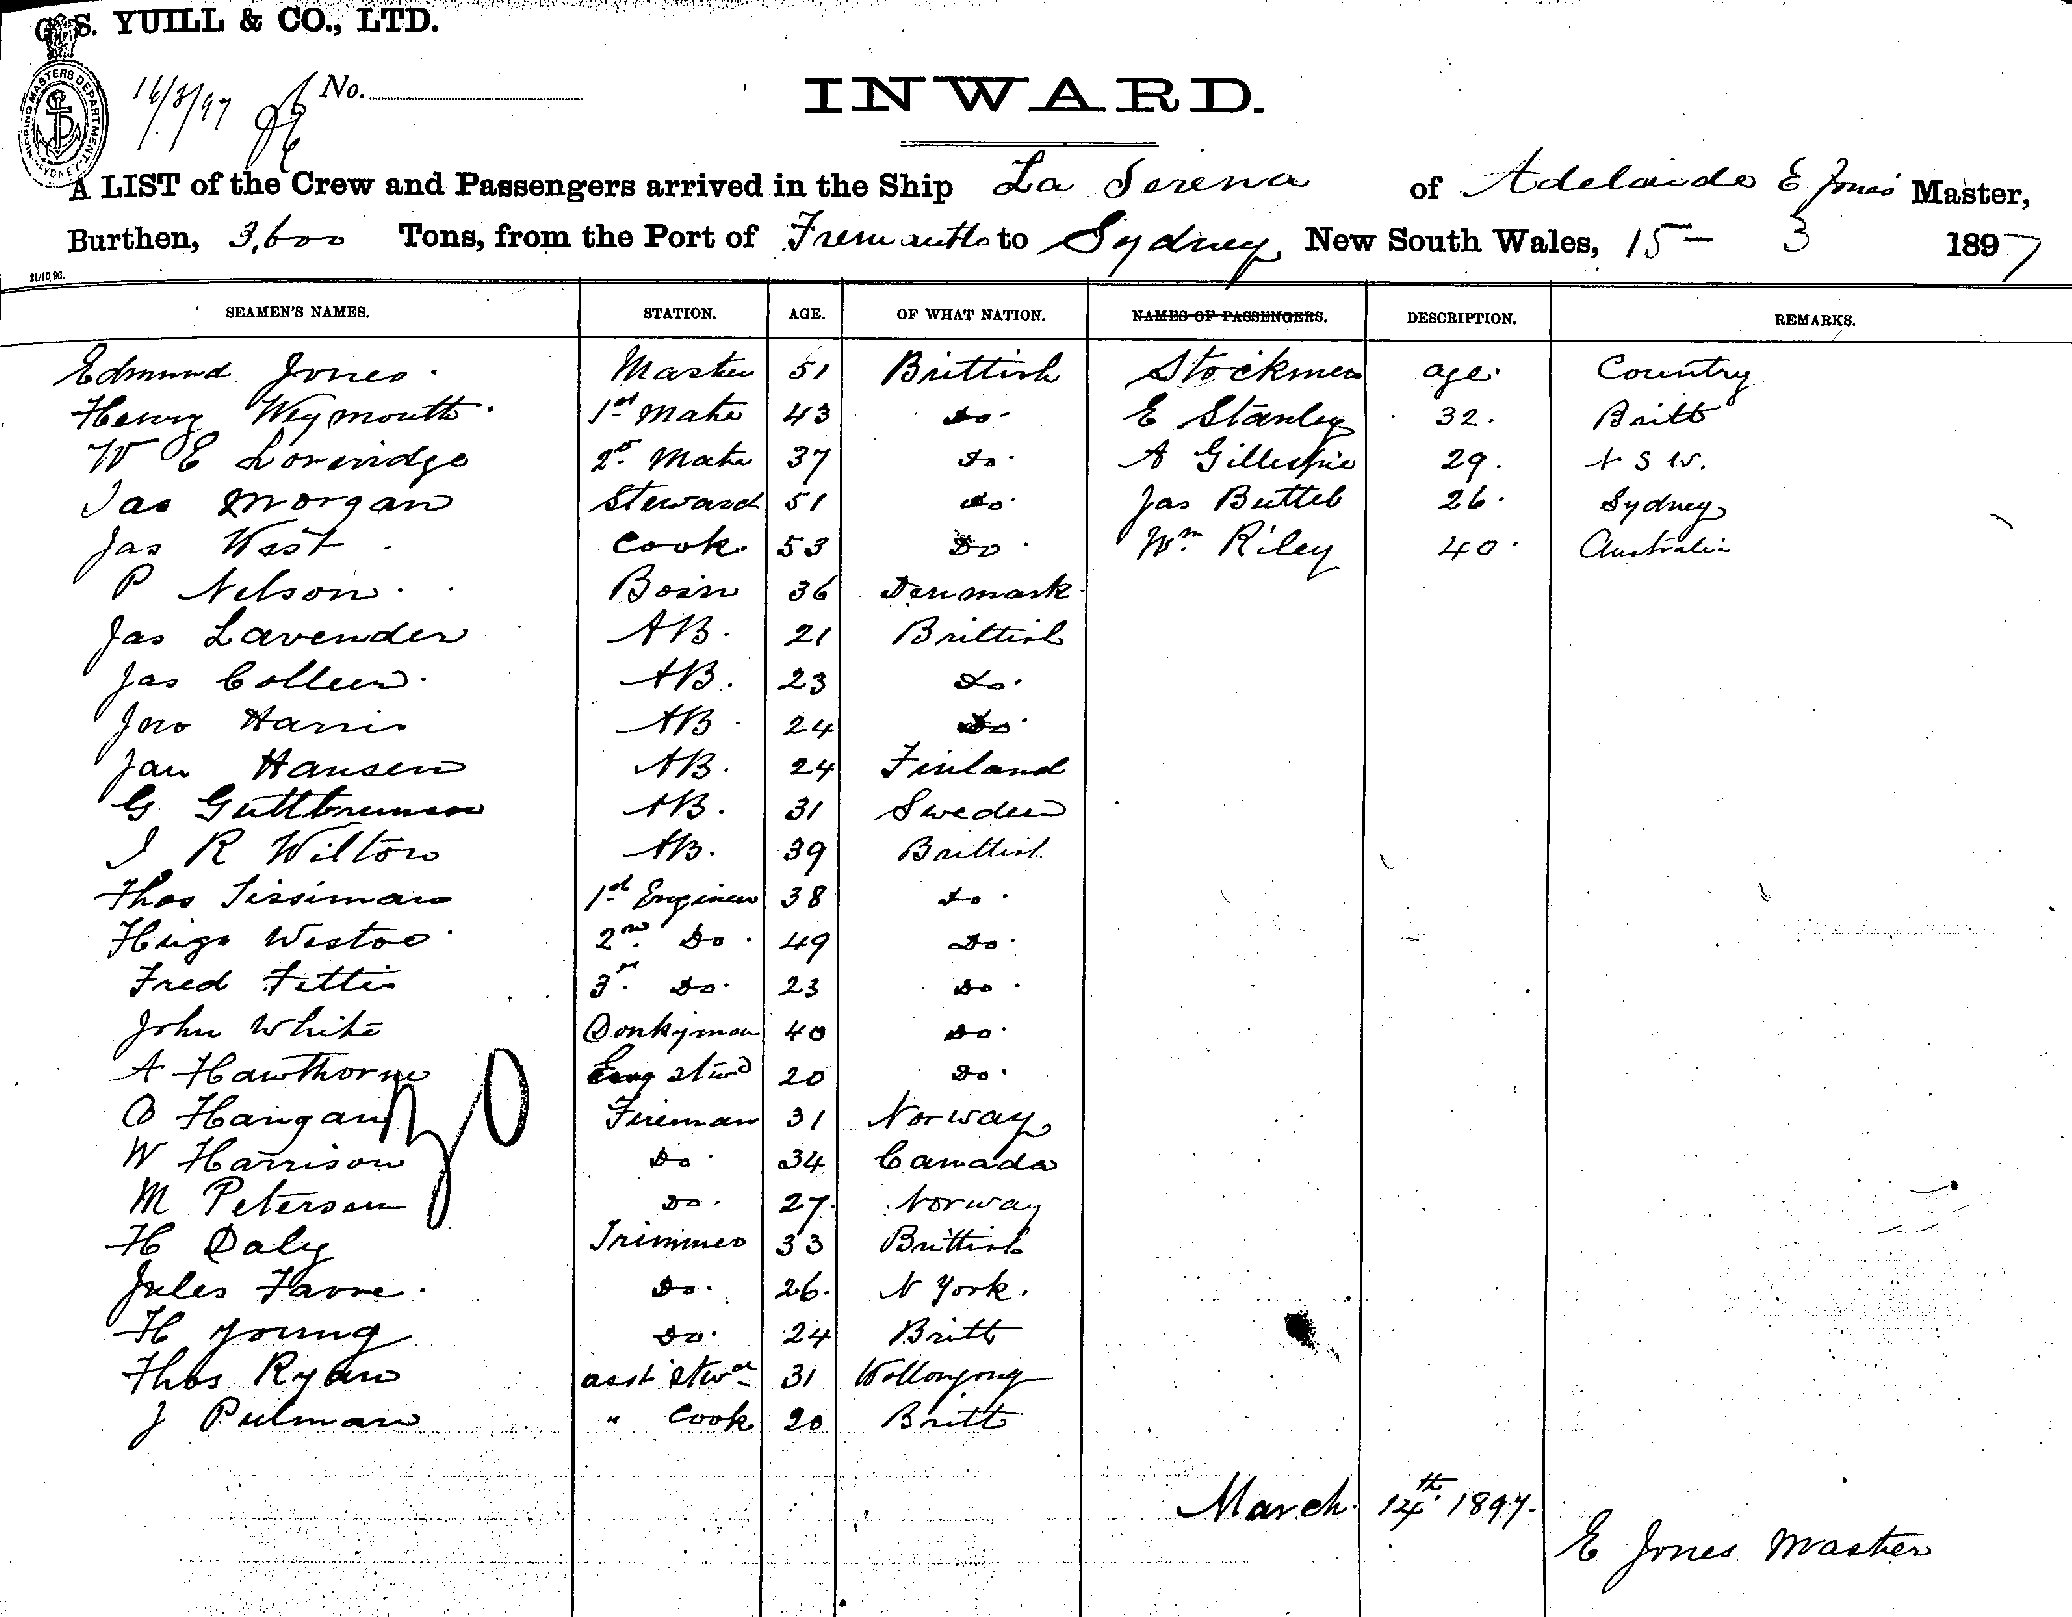 G. S. YUILL & CO., LTD.
SHIPPING MASTERS DEPARTMENT SYDNEY
16/3/97 No.
INWARD.
A LIST of the Crew and Passengers arrived in the Ship La Serena of Adelaide E Jones Master,
Burthen, 3,600 Tons, from the Port of Fremantle to Sydney, New South Wales, 15 - 3 1897
21/10 96.
SEAMEN'S NAMES. STATION. AGE. OF WHAT NATION. NAMES OF PASSENGERS. DESCRIPTION. REMARKS.
Edmund Jones Master 51 Brittish Stockmen age Country
Henry Weymouth 1st Mate 43 Do E Stanley 32 Britt
W E Loveridge 2nd Mate 37 Do A Gillespie 29 N S W.
Jas Morgan Steward 51 Do Jas 26 Sydney
Jas West Cook 53 Do Wm Riley 40 Australia
P Nelson Bosn 36 Denmark
Jas Lavender AB. 21 Brittish
Jas Colleen AB. 23 Do
Jno Harris AB 24 Do
Jan Hansen AB. 24 Finland
G. AB. 31 Sweden
J R Wilton AB. 39 Brittish
Thos Sissiman 1st Engineer 38 Do
Hugo 2nd Do 49 Do
Fred 3rd Do 23 Do
John White Donkyman 40 Do
A Hawthorne Eng Stwd 20 Do
O Hangan Fireman 31 Norway
W Harrison Do 34 Canada
M Petersen Do 27 Norway
H Daly Trimmer 33 Brittish
Jules Favre Do 26 N York.
H Young Do 24 Britt
Thos Ryan asst Stwd 31 Wollongong
J Pulman " Cook 20 Britt
March 14th 1897.
E Jones Master